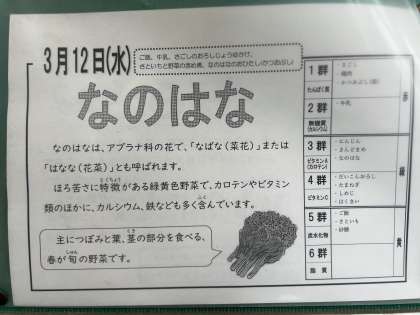 3月12日(水)
ご飯、牛乳、さごしのおろしじょうゆかけ、
さといもと野菜の含め煮、なのはなのおひたし(かつおぶし)
なのはな
なのはなは、アブラナ科の花で、「なばな(菜花)」または
「はなな(花菜)」とも呼ばれます。
ほろ苦さに特徴がある緑黄色野菜で、カロテンやビタミン
類のほかに、カルシウム、鉄なども多く含んでいます。
主につぼみと葉、茎の部分を食べる、
春が旬の野菜です。
1群
たんぱく質
・さごし
・鶏肉
・かつおぶし(粉)
赤
2群
無機質
(カルシウム)
・牛乳
3群
ビタミンA
(カロテン)
・にんじん
・さんどまめ
・なのはな
緑
4群
ビタミンC
・だいこんおろし
・たまねぎ
・しめじ
・はくさい
5群
炭水化物
・ご飯
・さといも
・砂糖
黄
6群
脂質